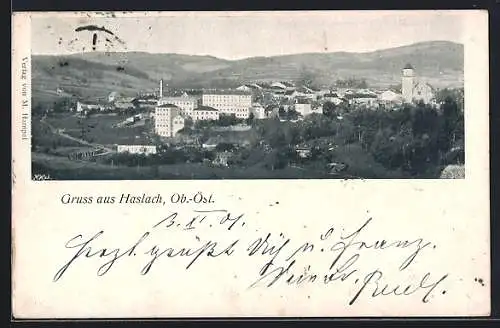 Verlag von M. Hampel
Gruss aus Haslach, Ob.-Öst.
3. XI. 01.
Herzl. grüßt Dich u. Franz.
Dein Br.